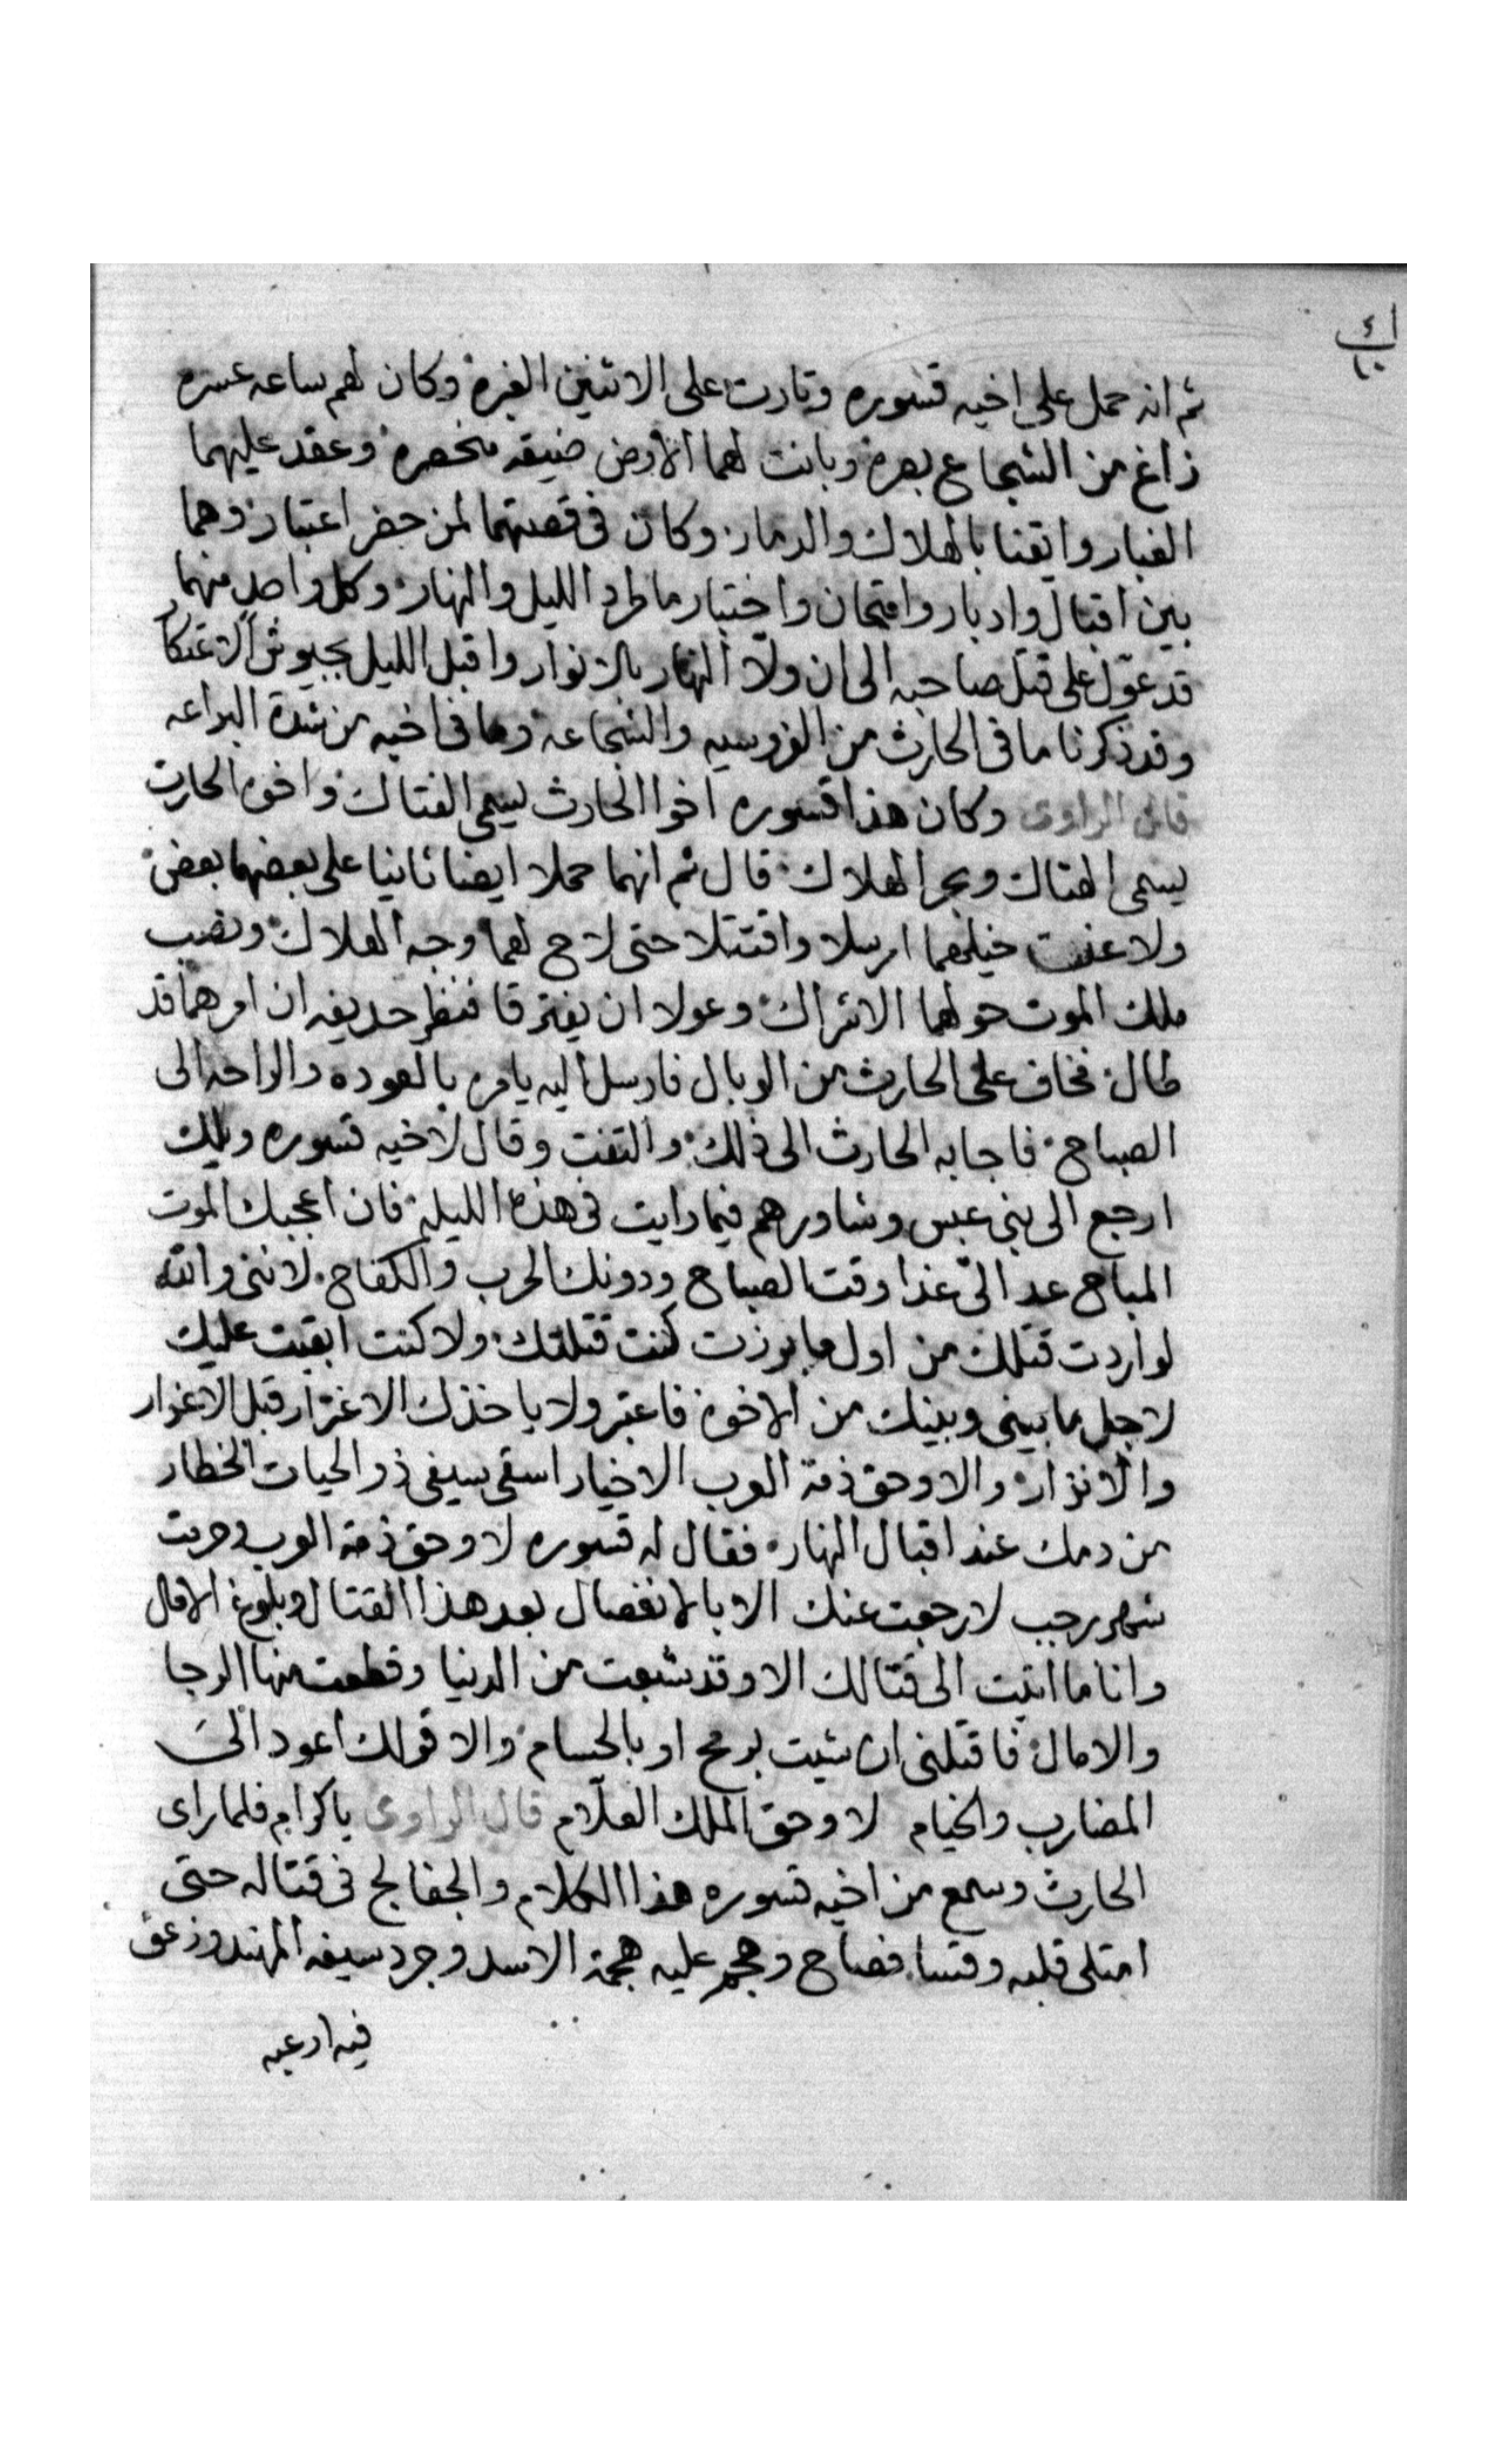 ثم انه حمل على اخيه قسوره وثارت على الاثنين الغبره وكان لهم ساعه عسره
زاغ من الشجاع بصره وبانت لهما الارض ضيقه منحصره وعقد عليهما
الغبار وايقنا بالهلاك والدمار وكان فى قصتهما لمن حضر اعتبار وهما
بين اقبال وادبار وامتحان واختبار ما طرد الليل والنهار وكل واحد منهما
قد عوّل على قتل صاحبه الى ان ولّا النهار بالانوار واقبل الليل بجيوش الاعتكا
وقد ذكرنا ما فى الحارث من الفروسيه والشجاعه وما فى اخيه من شدة البراعه
قال الراوى وكان هذا قسوره اخوا الحارث يسمى الفتاك واخوه الحارث
يسمى الهتاك وبحر الهلاك قال ثم انهما حملا ايضا ثانيا على بعضهما بعض
ولاعنت خيلهما ارسلا واقتتلا حتى لاح لهما وجه الهلاك ونصب
ملك الموت حولهما الاشراك وعولا ان يفترقا فنظر حديفه ان امرهما قد
طال فخاف على الحارث من الوبال فارسل اليه يامره بالعوده والراحه الى
الصباح فاجابه الحارث الى ذلك والتفت وقال لاخيه قسوره ويلك
ارجع الى بنى عبس وشاورهم فيما رايت فى هذه الليله فان اعجبك الموت
المباح عد الىّ غدا وقت الصباح ودونك الحرب والكفاح لاننى والله
لو اردت قتلك من اول ما برزت كنت قتلتك ولا كنت ابقيت عليك
لاجل ما بينى وبينك من الاخوه فاعتبر ولا ياخذك الاغترار قبل الاغوار
والانزار والا وحق ذمة العرب الاخيار اسقى سيفى ذو الحيات الخطار
من دمك عند اقبال النهار فقال له قسوره لا وحق ذمة العرب وحرمت
شهر رجب لا رجعت عنك الا بالانفصال بعد هذا القتال وبلوغ الامال
وانا ما اتيت الى قتالك الا وقد شبعت من الدنيا وقطعت منها الرجا
والامال فاقتلنى ان شيت برمح او بالحسام والا قولك اعود الىَ
المضارب والخيام لا وحق الملك العلّام قال الراوى ياكرام فلما راى
الحارث وسمع من اخيه قسوره هذا الكلام والجفا لج فى قتاله حتى
امتلى قلبه وقسا فصاح وهجم عليه هجمة الاسد وجرد سيفه المهند وزعق
فيه ارعبه